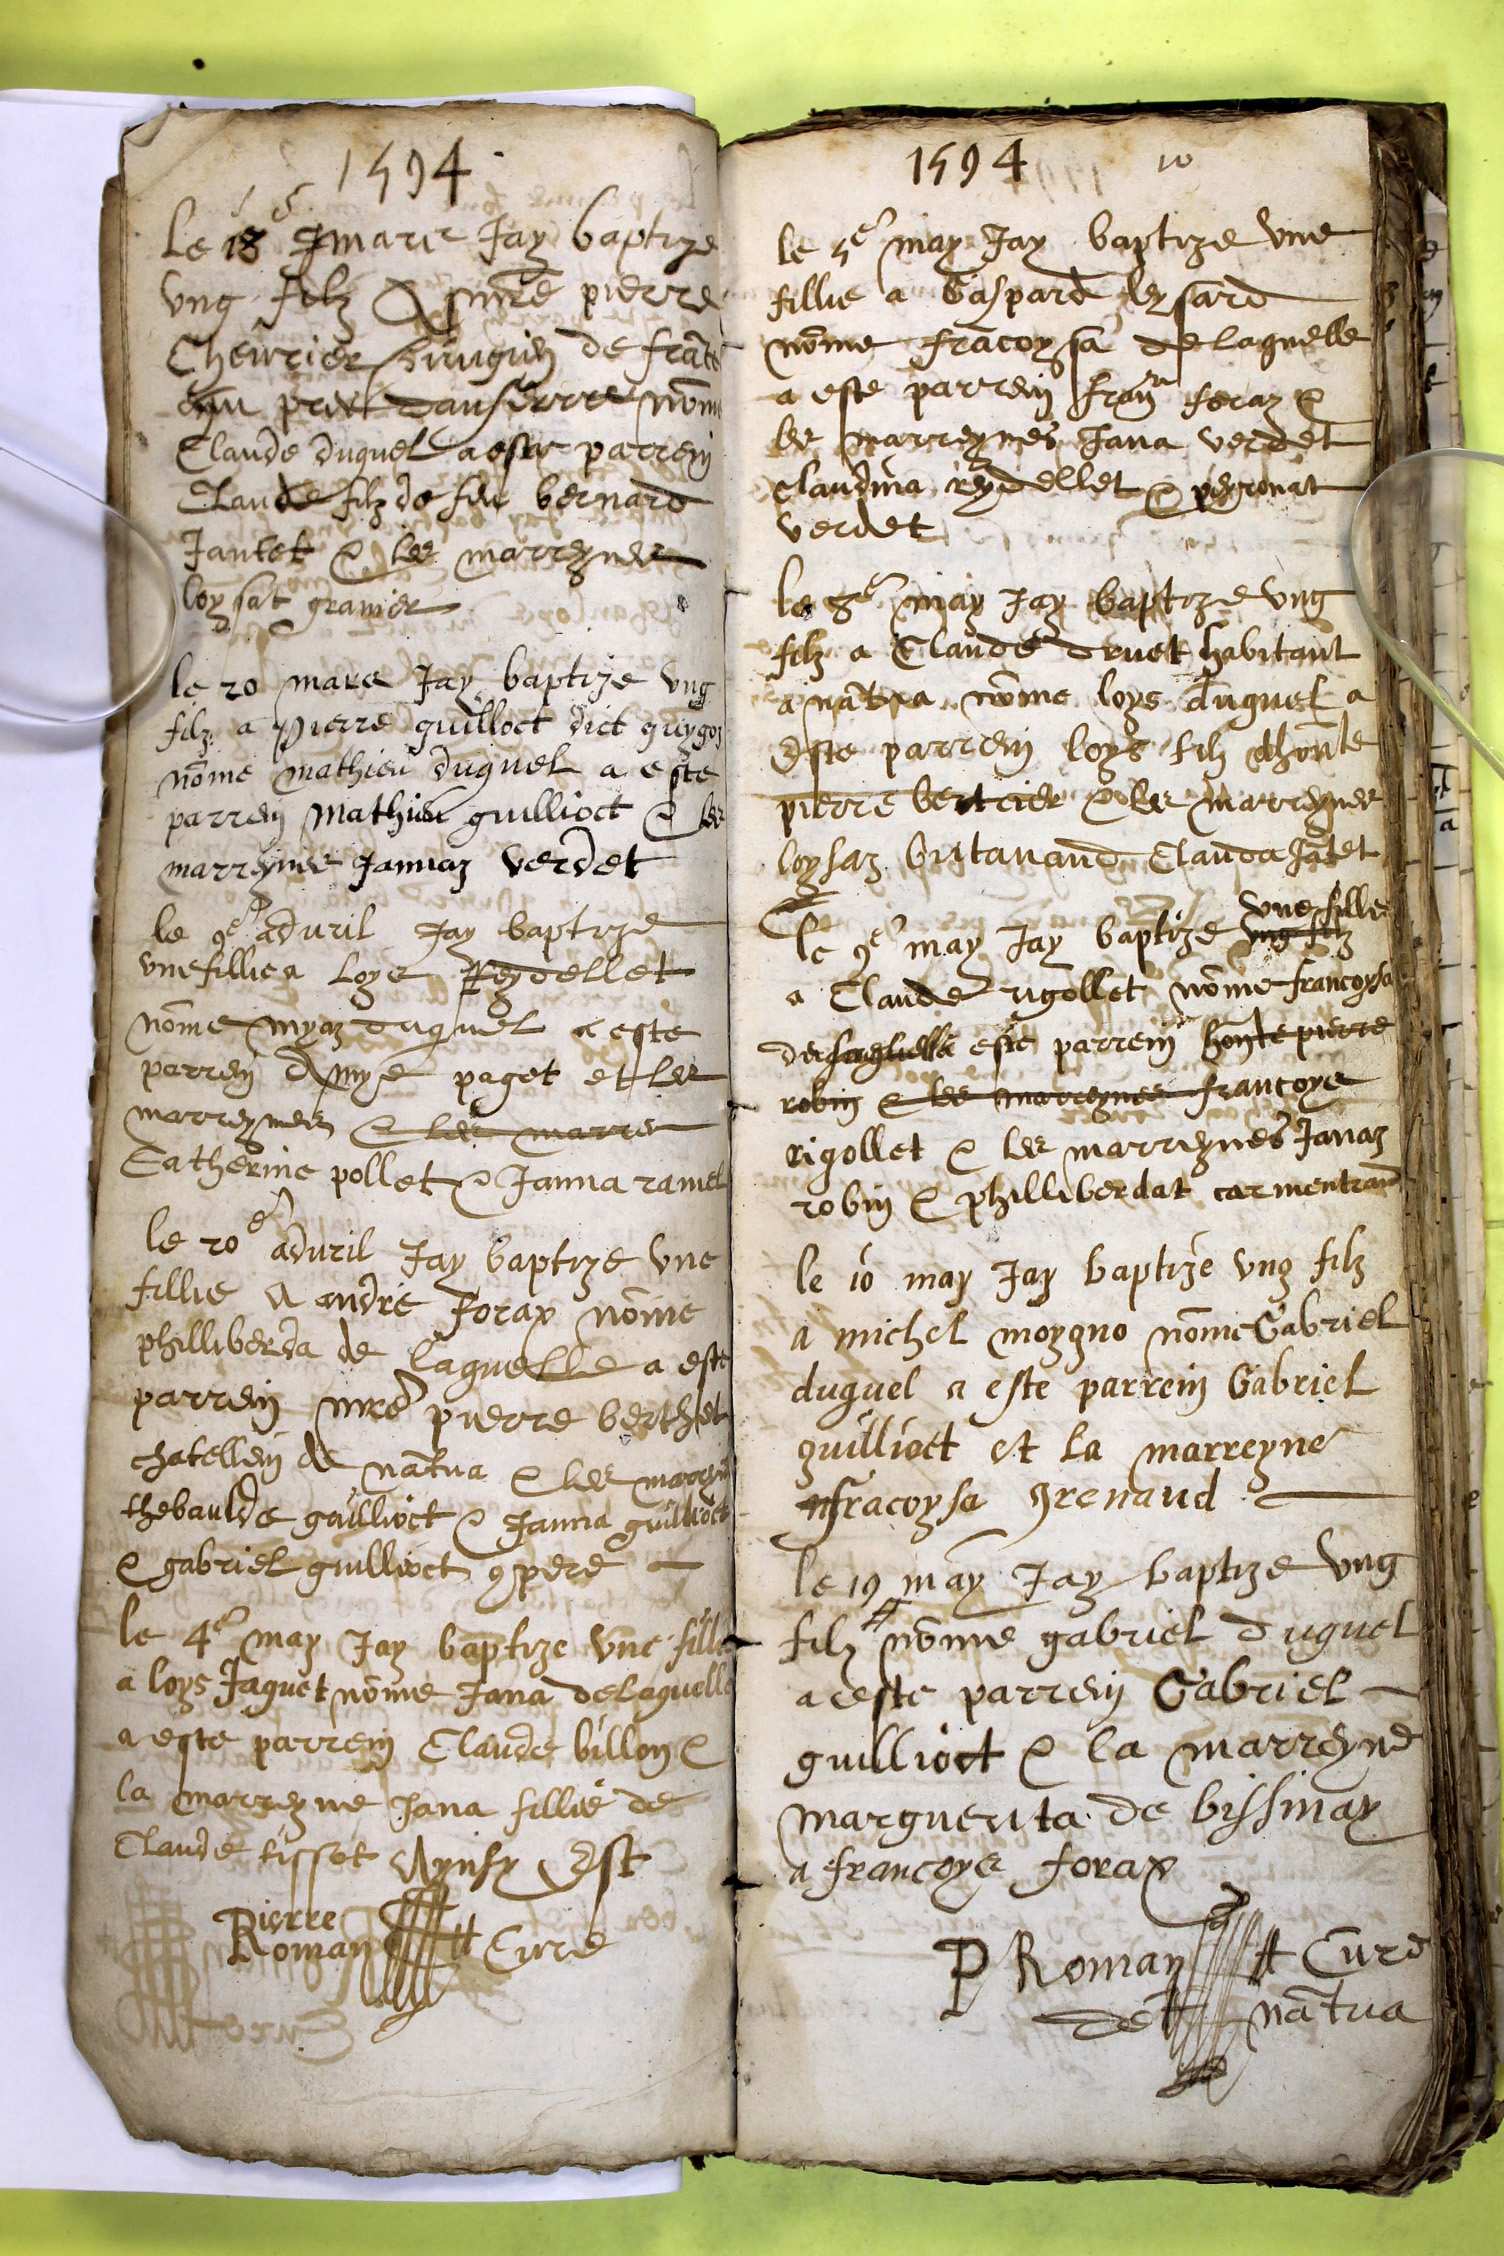 1594
Le 18 mars Jay baptize
ung filz A mre pierre
Chevrier de
nome
Claude duquel a este parrein
Claude filz de feu bernard
Jantet & les marreynes
loysat granier
le 20 mars Jay baptize ung
filz a Pierre guilloct dict guygoz
nome mathieu duquel a este
parrein Mathieu guillioct & les
marreynes Jannaz verdet
le 9e aduril Jay baptize
une fillie a Loys Reydellet
nome myaz duquel a este
parrein Amye paget et les
marreynes & les marre
Catherine pollet & Janna ramel
le 20e aduril Jay baptize une
fillie A andre forax nome
philliberda de laquelle a este
parrein mre pierre berthet
chatellein de natua & les marreyn
thebaulde guillioct & Janna guillioct
& gabriel guillioct 9pere
le 4e may Jay baptize une fillie
a loys Jaquet nome Jana de laquelle
a este parrein Claude billon &
la marreyne Jana fillie de
Claude tissot Aynsy Est
Pierre
Roman Cure
1594 10
le 5e may Jay baptize une
fillie a Gaspard leysard
nome fracoysa de laquelle
a este parrein foraz &
les marreynes Jana verdet
Claudina reydellet & peyronat
verdet
le 8e may Jay baptize ung
filz a Claude druet habitant
a natua nome loys duquel a
Este parrein loys filz dhonte
pierre bertrier & les marreynes
loysaz butavand Clauda Jatet
le 9e may Jay baptize ung filz une fillie
a Claude rigollet nome francoysa
de laquelle este parrein honte pierre
robin & les marreynes francoys
rigollet & les marreynes Janaz
robin & philliberdat carmentrand
le 10 may Jay baptize ung filz
a michel moygno nome Gabriel
duquel a este parrein Gabriel
guillioct et la marreyne
fracoysa grenaud
le 19 may Jay baptize ung
filz nome gabriel duquel
a este parrein Gabriel
guillioct & la marreyne
marguerita de bissinay
a francoys forax
P Roman Cure
de natua